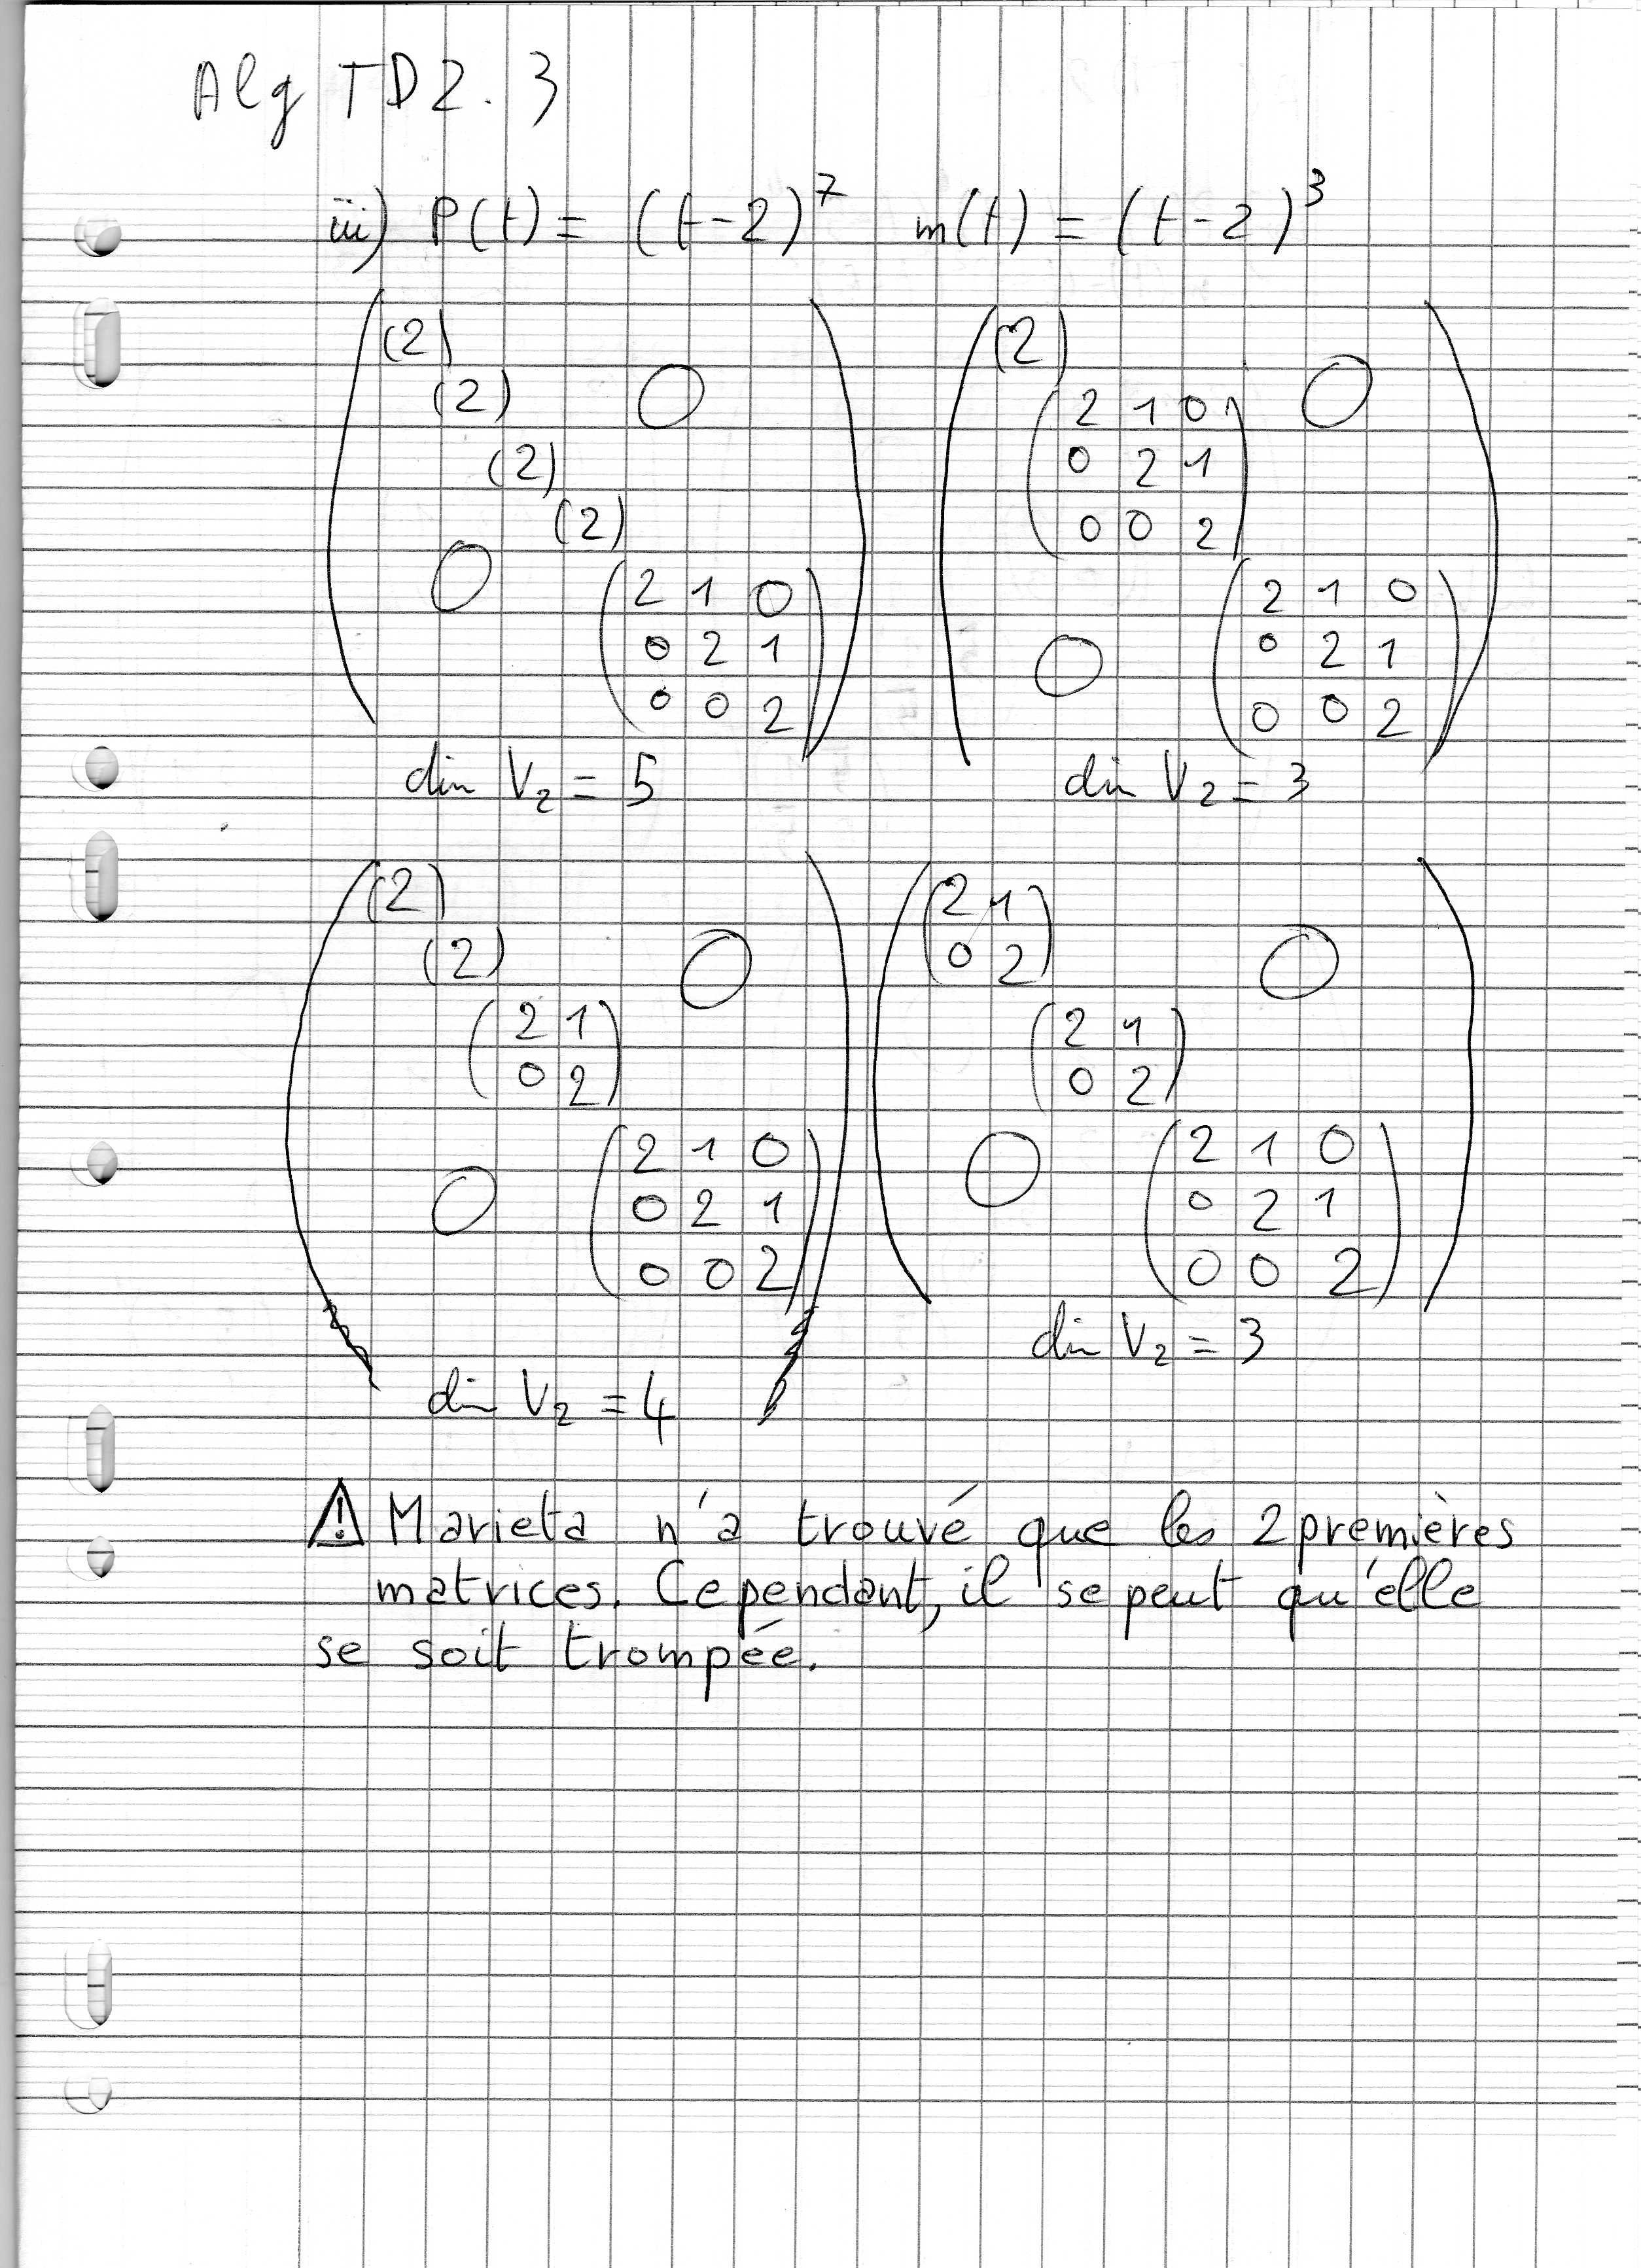 Alg TD2.3
iii) P(t) = (t-2)⁷ m(t) = (t-2)³
(2)
(2) O
(2)
(2)
O
2 1 0
0 2 1
0 0 2
dim V₂ = 5
(2)
2 1 0 O
0 2 1
0 0 2
O
2 1 0
0 2 1
0 0 2
dim V₂ = 3
(2)
(2) O
2 1
0 2
O
2 1 0
0 2 1
0 0 2
dim V₂ = 4
2 1
0 2 O
2 1
0 2
O
2 1 0
0 2 1
0 0 2
dim V₂ = 3
⚠ Marieta n'a trouvé que les 2 premières
matrices. Cependant, il se peut qu'elle
se soit trompée.